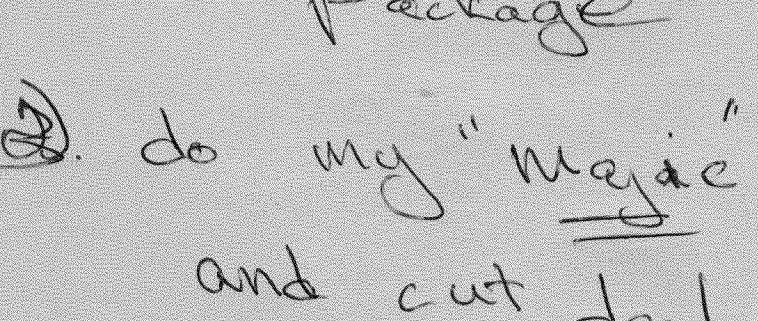 Package
2). do my "Majic"
and cut